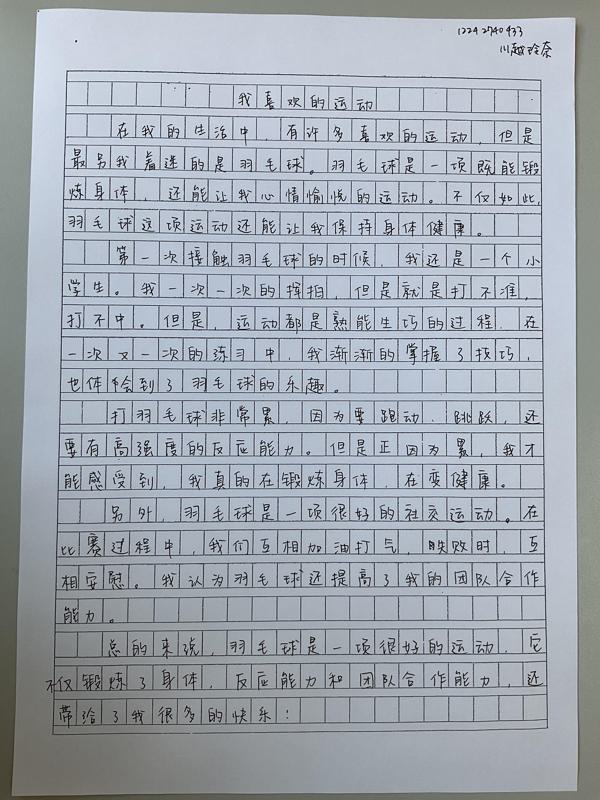 1224 2740 433
川越玲奈
我喜欢的运动
在我的生活中，有许多喜欢的运动，但是
最另我着迷的是羽毛球。羽毛球是一项既能锻
炼身体，还能让我心情愉悦的运动。不仅如此，
羽毛球这项运动还能让我保持身体健康。
第一次接触羽毛球的时候，我还是一个小
学生。我一次一次的挥拍，但是就是打不准，
打不中。但是，运动都是熟能生巧的过程，在
一次又一次的练习中，我渐渐的掌握了技巧，
也体会到了羽毛球的乐趣。
打羽毛球非常累，因为要跑动，跳跃，还
要有高强度的反应能力。但是正因为累，我才
能感受到，我真的在锻炼身体，在变健康。
另外，羽毛球是一项很好的社交运动。在
比赛过程中，我们互相加油打气，失败时，互
相安慰。我认为羽毛球还提高了我的团队合作
能力。
总的来说，羽毛球是一项很好的运动，它
不仅锻炼了身体，反应能力和团队合作能力，还
带给了我很多的快乐！